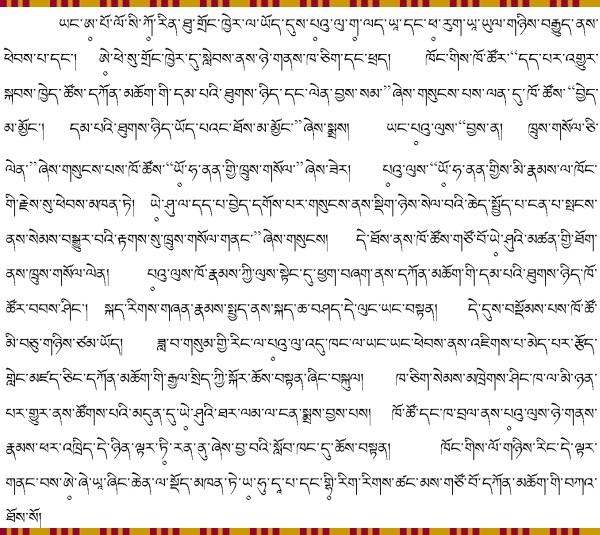 ཡང་ཨ༹་པོ་ལོ་སི་ཀོ༹་རིན་ཐུ་གྲོང་ཁྱེར་ལ་ཡོད་དུས་པ༹འུ་ལུ་ག༹་ལད་ཡཱ་དང་ཕ༹་རུག་ཡཱ་ཡུལ་གཉིས་བརྒྱུད་ནས་
ཕེབས་པ་དང་། ཨེ༹་ཕེ་སུ་གྲོང་ཁྱེར་དུ་སླེབས་ནས་ཉེ་གནས་ཁ་ཅིག་དང་ཕྲད། ཁོང་གིས་ཁོ་ཚོར་“དད་པར་འགྱུར་
སྐབས་ཁྱེད་ཚོས་དཀོན་མཆོག་གི་དམ་པའི་ཐུགས་ཉིད་དང་ལེན་བྱས་སམ་”ཞེས་གསུངས་པས་ལན་དུ་ཁོ་ཚོས་“བྱེད་
མ་མྱོང་། དམ་པའི་ཐུགས་ཉིད་ཡོད་པའང་ཐོས་མ་མྱོང་”ཞེས་སྨྲས། ཡང་པ༹འུ་ལུས་“བྱས་ན། ཁྲུས་གསོལ་ཅི་
ལེན་”ཞེས་གསུངས་པས་ཁོ་ཚོས་“ཡོ༹་ཧ་ནན་གྱི་ཁྲུས་གསོལ་”ཞེས་ཟེར། པ༹འུ་ལུས་“ཡོ༹་ཧ་ནན་གྱིས་མི་རྣམས་ལ་ཁོང་
གི་རྗེས་སུ་ཕེབས་མཁན་ཏེ། ཡེ༹་ཤུ་ལ་དད་པ་བྱེད་དགོས་པར་གསུངས་ནས་སྡིག་ཉེས་སེལ་བའི་ཆེད་སྤྱོད་པ་ངན་པ་སྤངས་
ནས་སེམས་བསྒྱུར་བའི་རྟགས་སུ་ཁྲུས་གསོལ་གནང་”ཞེས་གསུངས། དེ་ཐོས་ནས་ཁོ་ཚོས་གཙོ་བོ་ཡེ༹་ཤུའི་མཚན་གྱི་ཐོག་
ནས་ཁྲུས་གསོལ་ལེན། པ༹འུ་ལུས་ཁོ་རྣམས་ཀྱི་ལུས་སྟེང་དུ་ཕྱག་བཞག་ནས་དཀོན་མཆོག་གི་དམ་པའི་ཐུགས་ཉིད་ཁོ་
ཚོར་བབས་ཤིང་། སྐད་རིགས་གཞན་རྣམས་སྤྱད་ནས་སྐད་ཆ་བཤད་དེ་ལུང་ཡང་བསྟན། དེ་དུས་བསྡོམས་པས་ཁོ་ཚོ་
མི་བཅུ་གཉིས་ཙམ་ཡོད། ཟླ་བ་གསུམ་གྱི་རིང་ལ་པ༹འུ་ལུ་འདུ་ཁང་ལ་ཡང་ཡང་ཕེབས་ནས་འཇིགས་པ་མེད་པར་རྩོད་
གླེང་མཛད་ཅིང་དཀོན་མཆོག་གི་རྒྱལ་སྲིད་ཀྱི་སྐོར་ཆོས་བསྟན་ཞིང་བསྐུལ། ཁ་ཅིག་སེམས་མཁྲེགས་ཤིང་ཁ་ལ་མི་ཉན་
པར་གྱུར་ནས་ཚོགས་པའི་མདུན་དུ་ཡེ༹་ཤུའི་ཐར་ལམ་ལ་ངན་སྨྲས་བྱས་པས། ཁོ་ཚོ་དང་ཁ་བྲལ་ནས་པ༹འུ་ལུས་ཉེ་གནས་
རྣམས་ཕར་འཁྲིད་དེ་ཉིན་ལྟར་ཏི༹་རན་ནུ་ཞེས་བྱ་བའི་སློབ་ཁང་དུ་ཆོས་བསྟན། ཁོང་གིས་ལོ་གཉིས་རིང་དེ་ལྟར་
གནང་བས་ཨེ༹་ཞེ་ཡཱ་ཞིང་ཆེན་ལ་སྡོད་མཁན་ཏེ་ཡ༹་ཧུ་དཱ་པ་དང་གྷི༹་རིག་རིགས་ཚང་མས་གཙོ་བོ་དཀོན་མཆོག་གི་བཀའ་
ཐོས་སོ།